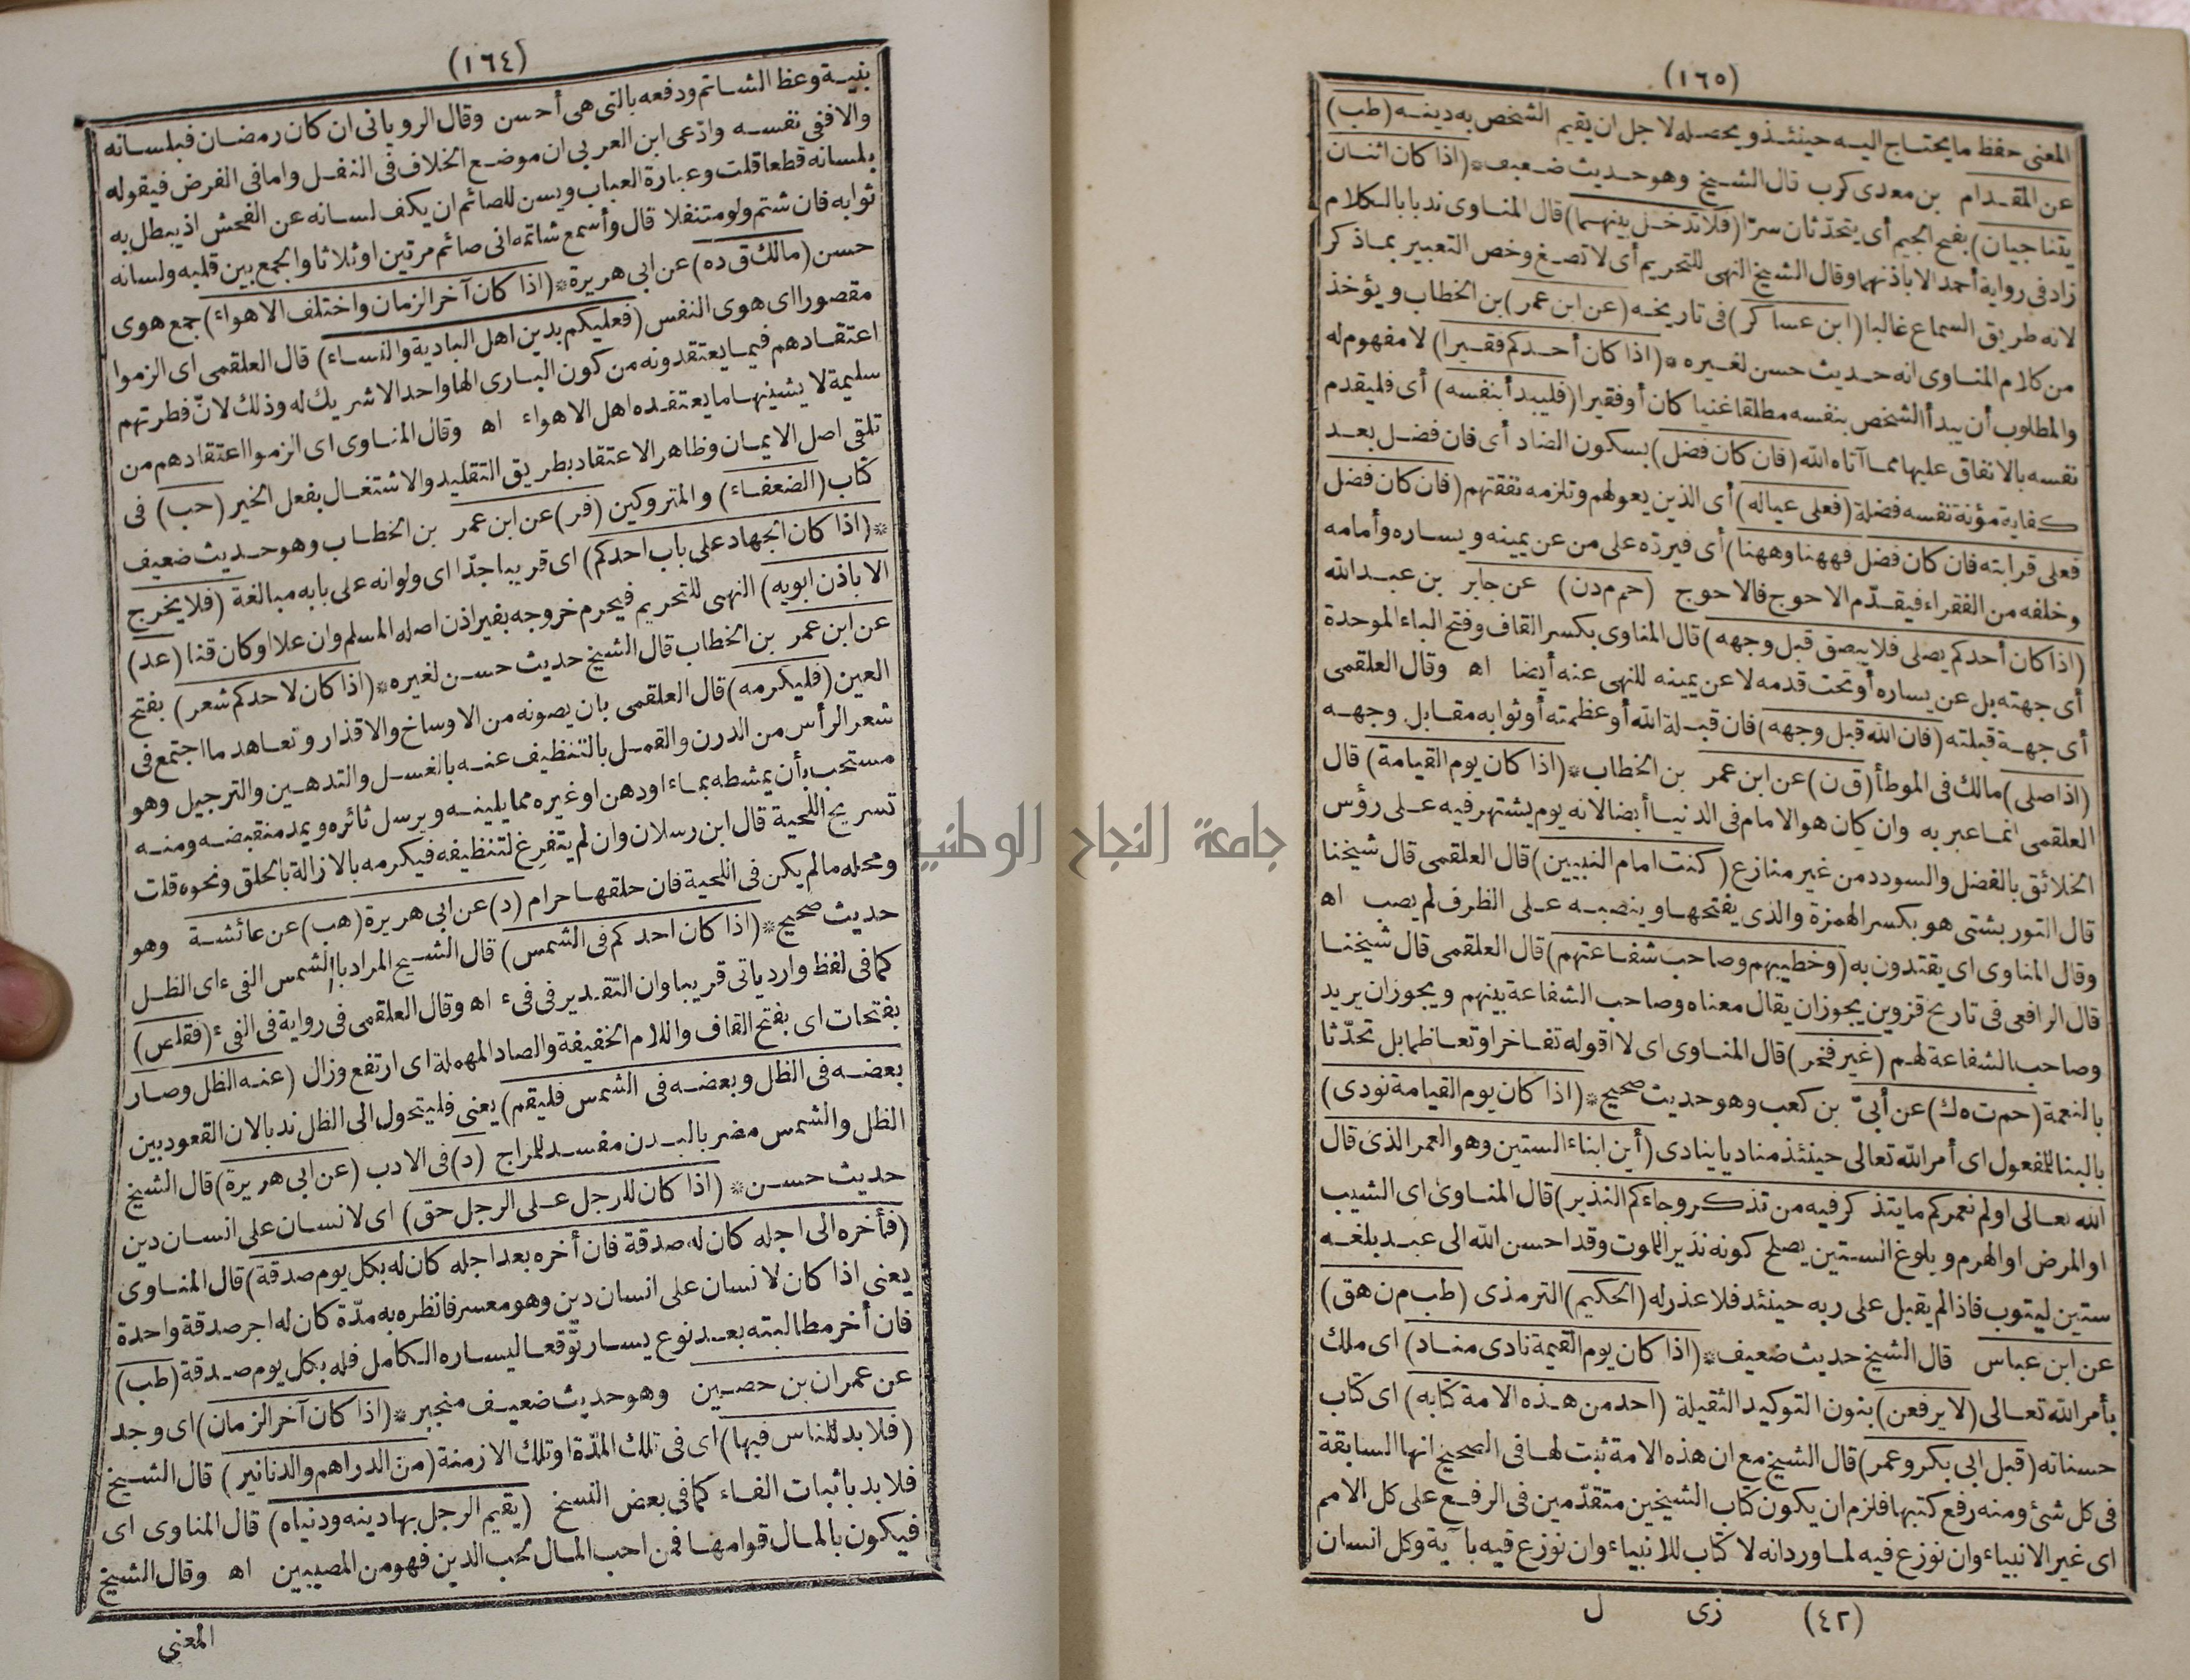 (١٦٤)
بنية وعظ الشاتم ودفعه بالتى هى أحسن وقال الرويانى ان كان رمضان فبلسانه
والا ففى نفسه وادّعى ابن العربى ان موضع الخلاف فى النفل واما فى الفرض فيقوله
بلسانه قطعا قلت وعبارة العباب ويسن للصائم ان يكف لسانه عن الفحش اذ يبطل به
ثوابه فان شتم ولو متنفلا قال وأسمع شاتمه انى صائم مرتين او ثلاثا والجمع بين قلبه ولسانه
حسن (مالك ق ده) عن ابى هريرة * (اذا كان آخر الزمان واختلف الاهواء) جمع هوى
مقصورا اى هوى النفس (فعليكم بدين اهل البادية والنساء) قال العلقمى اى الزموا
اعتقادهم فيما يعتقدونه من كون البارى الها واحدا لا شريك له وذلك لانّ فطرتهم
سليمة لا يشينها ما يعتقده اهل الاهواء اه وقال المناوى اى الزموا اعتقادهم من
تلقى اصل الايمان وظاهر الاعتقاد بطريق التقليد والاشتغال بفعل الخير (حب) فى
كتاب (الضعفاء) والمتروكين (فر) عن ابن عمر بن الخطاب وهو حديث ضعيف
* (اذا كان الجهاد على باب احدكم) اى قريبا جدّا اى ولو انه على بابه مبالغة (فلا يخرج
الا باذن ابويه) النهى للتحريم فيحرم خروجه بغير اذن اصله المسلم وان علا او كان قنا (عد)
عن ابن عمر بن الخطاب قال الشيخ حديث حسن لغيره * (اذا كان لاحدكم شعر) بفتح
العين (فليكرمه) قال العلقمى بان يصونه من الاوساخ والاقذار وتعاهد ما اجتمع فى
شعر الرأس من الدرن والقمل بالتنظيف عنه بالغسل والتدهين والترجيل وهو
مستحب بأن يمشطه بماء او دهن او غيره مما يلينه ويرسل ثائره ويمد منقبضه ومنه
تسريح اللحية قال ابن رسلان وان لم يتفرغ لتنظيفه فيكرمه بالازالة بالحلق ونحوه قلت
ومحله ما لم يكن فى اللحية فان حلقها حرام (د) عن ابى هريرة (هب) عن عائشة وهو
حديث صحيح * (اذا كان احدكم فى الشمس) قال الشيخ المراد بالشمس الفىء اى الظل
كما فى لفظ وارد يأتى قريبا وان التقدير فى فىء اه وقال العلقمى فى رواية فى الفىء (فقلص)
بفتحات اى بفتح القاف واللام الخفيفة والصاد المهملة اى ارتفع وزال (عنه الظل وصار
بعضه فى الظل وبعضه فى الشمس فليقم) يعنى فليتحول الى الظل ندبا لان القعود بين
الظل والشمس مضر بالبدن مفسد للمزاج (د) فى الادب (عن ابى هريرة) قال الشيخ
حديث حسن * (اذا كان للرجل على الرجل حق) اى لانسان على انسان دين
(فأخره الى اجله كان له صدقة فان أخره بعد اجله كان له بكل يوم صدقة) قال المناوى
يعنى اذا كان لانسان على انسان دين وهو معسر فانظره به مدّة كان له اجر صدقة واحدة
فان أخر مطالبته بعد نوع يسار توقعا ليساره الكامل فله بكل يوم صدقة (طب)
عن عمران بن حصين وهو حديث ضعيف منجبر * (اذا كان آخر الزمان) اى وجد
(فلا بد للناس فيها) اى فى تلك المدّة او تلك الازمنة (من الدراهم والدنانير) قال الشيخ
فلا بد باثبات الفاء كما فى بعض النسخ (يقيم الرجل بها دينه ودنياه) قال المناوى اى
فيكون بالمال قوامها فمن احب المال لحب الدين فهو من المصيبين اه وقال الشيخ
المعنى
(١٦٥)
المعنى حفظ ما يحتاج اليه حينئذ ويحصله لاجل ان يقيم الشخص به دينه (طب)
عن المقدام بن معدى كرب قال الشيخ وهو حديث ضعيف * (اذا كان اثنان
يتناجيان) بفتح الجيم أى يتحدّثان سرّا (فلا تدخل بينهما) قال المناوى ندبا بالكلام
زاد فى رواية أحمد الا باذنهما وقال الشيخ النهى للتحريم أى لا تصغ وخص التعبير بما ذكر
لانه طريق السماع غالبا (ابن عساكر) فى تاريخه (عن ابن عمر) بن الخطاب ويؤخذ
من كلام المناوى انه حديث حسن لغيره * (اذا كان أحدكم فقيرا) لا مفهوم له
والمطلوب أن يبدأ الشخص بنفسه مطلقا غنيا كان أو فقيرا (فليبدأ بنفسه) أى فليقدم
نفسه بالانفاق عليها مما آتاه الله (فان كان فضل) بسكون الضاد أى فان فضل بعد
كفاية مؤنة نفسه فضلة (فعلى عياله) أى الذين يعولهم وتلزمه نفقتهم (فان كان فضل
فعلى قرابته فان كان فضل فههنا وههنا) أى فيردّه على من عن يمينه ويساره وأمامه
وخلفه من الفقراء فيقدّم الاحوج فالاحوج (حم م دن) عن جابر بن عبد الله
(اذا كان أحدكم يصلى فلا يبصق قبل وجهه) قال المناوى بكسر القاف وفتح الباء الموحدة
أى جهته بل عن يساره أو تحت قدمه لا عن يمينه للنهى عنه أيضا اه وقال العلقمى
أى جهة قبلته (فان الله قبل وجهه) فان قبلة الله أو عظمته أو ثوابه مقابل وجهه
(اذا صلى) مالك فى الموطأ (ق ن) عن ابن عمر بن الخطاب * (اذا كان يوم القيامة) قال
العلقمى انما عبر به وان كان هو الامام فى الدنيا أيضا لانه يوم يشتهر فيه على رؤس
الخلائق بالفضل والسودد من غير منازع (كنت امام النبيين) قال العلقمى قال شيخنا
قال التوربشتى هو بكسر الهمزة والذى يفتحها وينصبه على الظرف لم يصب اه
وقال المناوى اى يقتدون به (وخطيبهم وصاحب شفاعتهم) قال العلقمى قال شيخنا
قال الرافعى فى تاريخ قزوين يجوز ان يقال معناه وصاحب الشفاعة بينهم ويجوز ان يريد
وصاحب الشفاعة لهم (غير فخر) قال المناوى اى لا اقوله تفاخرا وتعاظما بل تحدّثا
بالنعمة (حم ت ه ك) عن أبىّ بن كعب وهو حديث صحيح * (اذا كان يوم القيامة نودى)
بالبنا للمفعول اى أمر الله تعالى حينئذ مناديا ينادى (أين ابناء الستين وهو العمر الذى قال
الله تعالى اولم نعمركم ما يتذكر فيه من تذكر وجاءكم النذير) قال المناوى اى الشيب
او المرض او الهرم وبلوغ الستين يصلح كونه نذير الموت وقد احسن الله الى عبد بلغه
ستين ليتوب فاذا لم يقبل على ربه حينئذ فلا عذر له (الحكيم) الترمذى (طب م ن هق)
عن ابن عباس قال الشيخ حديث ضعيف * (اذا كان يوم القيمة نادى مناد) اى ملك
بأمر الله تعالى (لا يرفعن) بنون التوكيد الثقيلة (احد من هذه الامة كتابه) اى كتاب
حسناته (قبل ابى بكر وعمر) قال الشيخ مع ان هذه الامة ثبت لها فى الصحيح انها السابقة
فى كل شئ ومنه رفع كتبها فلزم ان يكون كتاب الشيخين متقدّمين فى الرفع على كل الامم
اى غير الانبياء وان نوزع فيه لما ورد انه لا كتاب للانبياء وان نوزع فيه بآية وكل انسان
(٤٢) زى ل
جامعة النجاح الوطنية